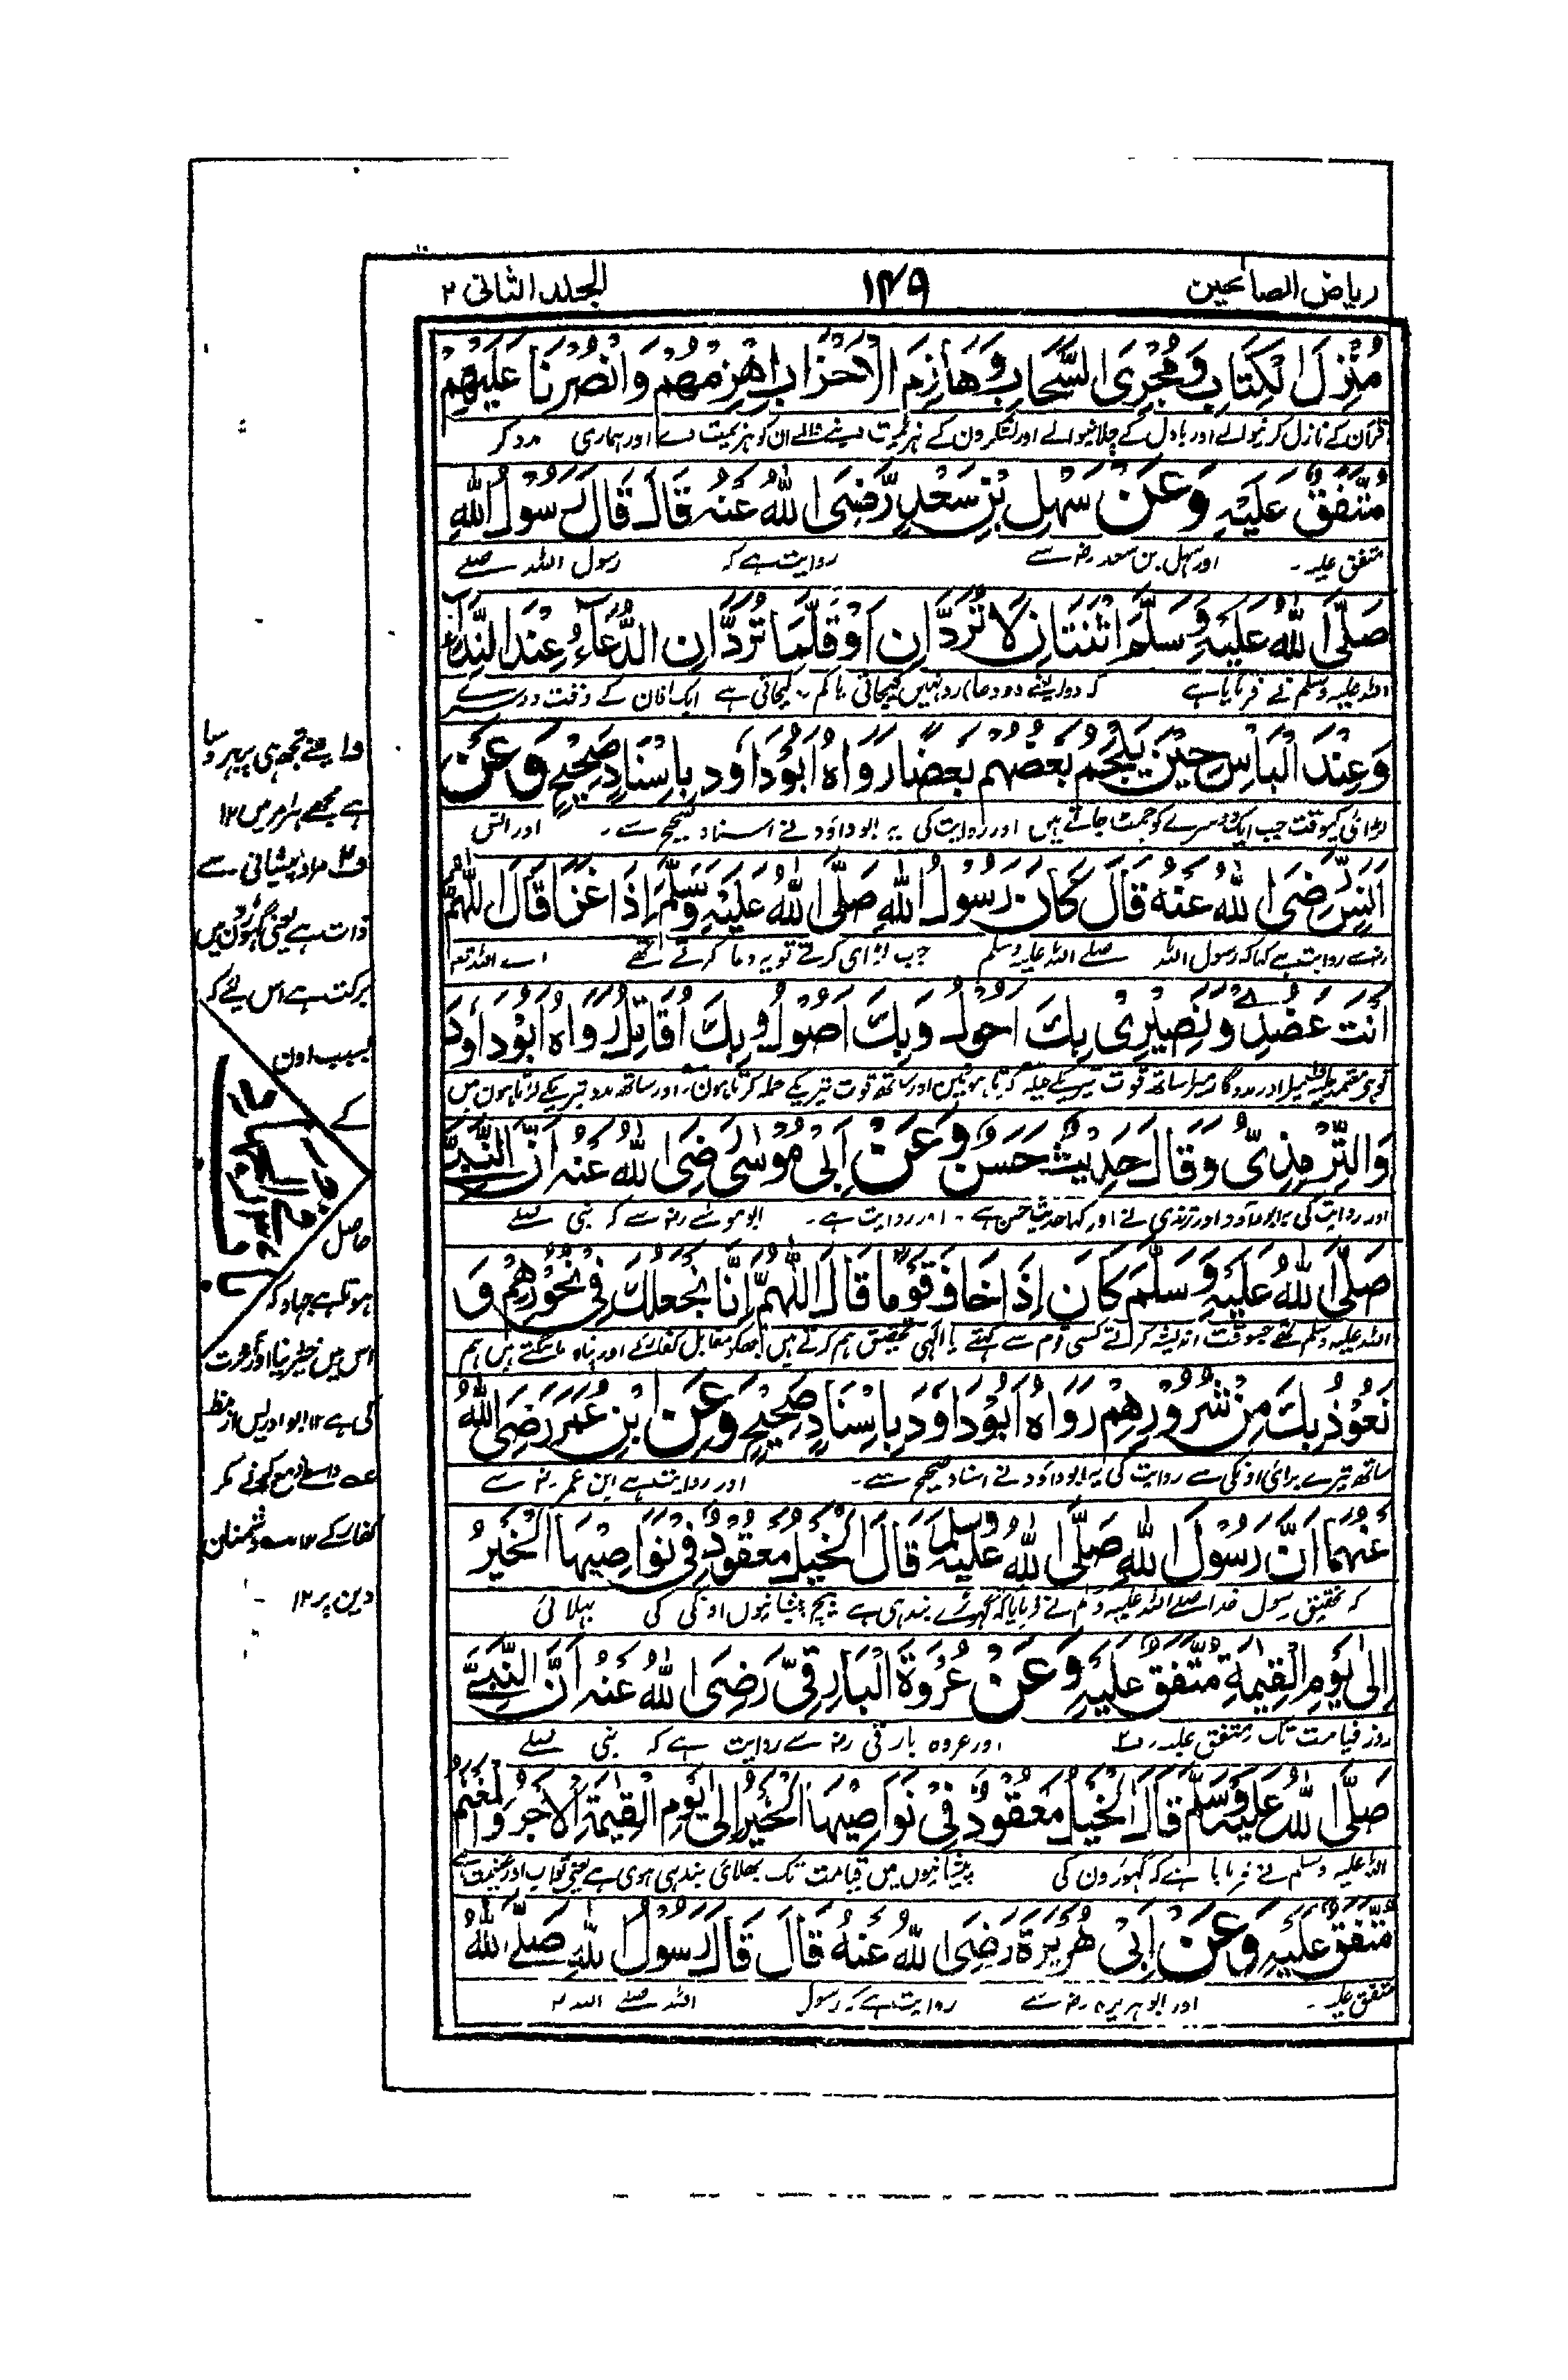 رياض الصالحين ۱۴۹ الجلد الثانی ۲
مُنْزِلَ الْكِتَابِ وَمُجْرِیَ السَّحَابِ وَهَازِمَ الْاَحْزَابِ اهْزِمْهُمْ وَانْصُرْنَا عَلَيْهِمْ
قرآن کے نازل کرنیوالے اور بادل کے چلانیوالے اور لشکرون کے ہزیمت دینے والے ان کو ہزیمت دے اور ہماری مدد کر
مُتَّفَقٌ عَلَيْهِ وَعَنْ سَهْلِ بْنِ سَعْدٍ رَّضِیَ اللّٰهُ عَنْهُ قَالَ قَالَ رَسُوْلُ اللّٰهِ
متفق علیہ۔ اور سہل بن سعد رضہ سے روایت ہے کہ رسول اللہ صلے
صَلَّی اللّٰهُ عَلَيْهِ وَسَلَّمَ اثْنَتَانِ لَا تُرَدَّانِ اَوْ قَلَّمَا تُرَدَّانِ الدُّعَآءُ عِنْدَ النِّدَآءِ
اللہ علیہ وسلم نے فرمایا ہے کہ دو یعنے دو دعا رد نہیں کیجاتی یا کم کیجاتی ہے ایک اذان کے وقت دوسرے
وَعِنْدَ الْبَاْسِ حِيْنَ يَلْحَمُ بَعْضُهُمْ بَعْضًا رَوَاهُ اَبُوْدَاوٗدَ بِاِسْنَادٍ صَحِيْحٍ وَعَنْ
لڑائی کیوقت جب ایک دوسرے کو چمٹ جاتے ہیں اور روایت کی یہ ابوداؤد نے اسناد صحیح سے۔ اور انس
اَنَسٍ رَّضِیَ اللّٰهُ عَنْهُ قَالَ كَانَ رَسُوْلُ اللّٰهِ صَلَّی اللّٰهُ عَلَيْهِ وَسَلَّمَ اِذَا غَزَا قَالَ اللّٰهُمَّ
رضہ سے روایت ہے کہا کہ رسول اللہ صلے اللہ علیہ وسلم جب لڑای کرتے تو یہ دعا کرتے تھے اے اللہ تو
اَنْتَ عَضُدِیْ وَنَصِيْرِیْ بِكَ اَحُوْلُ وَبِكَ اَصُوْلُ وَبِكَ اُقَاتِلُ رَوَاهُ اَبُوْدَاوٗدَ
وَالتِّرْمِذِیُّ وَقَالَ حَدِيْثٌ حَسَنٌ وَعَنْ اَبِیْ مُوْسٰی رَضِیَ اللّٰهُ عَنْهُ اَنَّ النَّبِیَّ
اور روایت کی یہ ابوداؤد اور ترمذی نے اور کہا حدیث حسن ہے۔ اور روایت ہے۔ ابوموسے رضہ سے کہ نبی صلے
صَلَّی اللّٰهُ عَلَيْهِ وَسَلَّمَ كَانَ اِذَا خَافَ قَوْمًا قَالَ اللّٰهُمَّ اِنَّا نَجْعَلُكَ فِیْ نُحُوْرِهِمْ وَ
اللہ علیہ وسلم تھے جسوقت اندیشہ کرتے کسی قوم سے کہتے یا الٰہی تحقیق ہم کرتے ہیں تجھکو مقابل کفار کے اور پناہ مانگتے ہیں ہم
نَعُوْذُ بِكَ مِنْ شُرُوْرِهِمْ رَوَاهُ اَبُوْدَاوٗدَ بِاِسْنَادٍ صَحِيْحٍ وَعَنِ ابْنِ عُمَرَ رَضِیَ اللّٰهُ
ساتھ تیرے برائی اونکی سے روایت کی یہ ابوداؤد نے اسناد صحیح سے۔ اور روایت ہے ابن عمر رضہ سے
عَنْهُمَا اَنَّ رَسُوْلَ اللّٰهِ صَلَّی اللّٰهُ عَلَيْهِ وَسَلَّمَ قَالَ الْخَيْلُ مَعْقُوْدٌ فِیْ نَوَاصِيْهَا الْخَيْرُ
کہ تحقیق رسول خدا صلے اللہ علیہ وسلم نے فرمایا کہ گہوڑے بندہی ہے بیچ پیشانیوں اونکی کی بہلائی
اِلٰی يَوْمِ الْقِيٰمَةِ مُتَّفَقٌ عَلَيْهِ وَعَنْ عُرْوَةَ الْبَارِقِیِّ رَضِیَ اللّٰهُ عَنْهُ اَنَّ النَّبِیَّ
روز قیامت تک متفق علیہ۔ اور عروہ بارقی رضہ سے روایت ہے کہ نبی صلے
صَلَّی اللّٰهُ عَلَيْهِ وَسَلَّمَ قَالَ الْخَيْلُ مَعْقُوْدٌ فِیْ نَوَاصِيْهَا الْخَيْرُ اِلٰی يَوْمِ الْقِيٰمَةِ الْاَجْرُ وَالْمَغْنَمُ
اللہ علیہ وسلم نے فرمایا ہے کہ گہوڑون کی پیشانیوں میں قیامت تک بھلائی بندہی ہوی ہے یعنی ثواب اور غنیمت
مُتَّفَقٌ عَلَيْهِ وَعَنْ اَبِیْ هُرَيْرَةَ رَضِیَ اللّٰهُ عَنْهُ قَالَ قَالَ رَسُوْلُ اللّٰهِ صَلَّی اللّٰهُ
متفق علیہ۔ اور ابوہریرہ رضہ سے روایت ہے کہ رسول اللہ صلے اللہ
ف۱ یعنے تجھ ہی پر بہروسا
ہے مجھے ہر امر میں ۱۲
ف۲ مراد پیشانی سے
ذات ہے یعنی گہوڑون میں
برکت ہے اس لئے کہ
بسبب اون
کے
حاصل
ہوتا ہے جہاد کہ
اس میں خیر دنیا اور آخرت
کی ہے ۱۲
کفار کے ۱۲ دشمنان
دین پر ۱۲